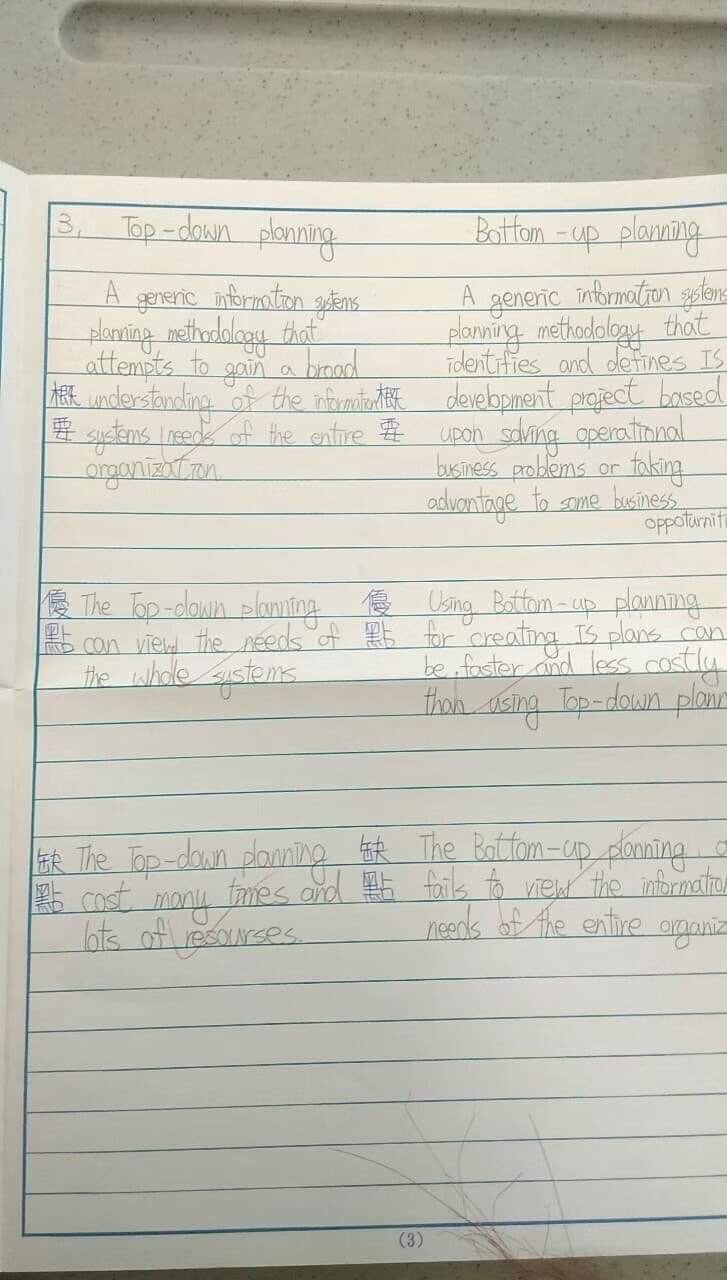 3. Top-down planning
A generic information systems
planning methodology that
attempts to gain a broad
概 understanding of the information
要 systems needs of the entire
organization.
優 The Top-down planning
點 can view the needs of
the whole systems
缺 The Top-down planning
點 cost many times and
lots of resourses.
Bottom-up planning
A generic information systems
planning methodology that
identifies and defines IS
概 development project based
要 upon solving operational
business problems or taking
advantage to some business
優 Using Bottom-up planning
點 for creating IS plans can
be faster and less costly
than using Top-down
缺 The Bottom-up planning
點 fails to view the
needs of the entire
(3)